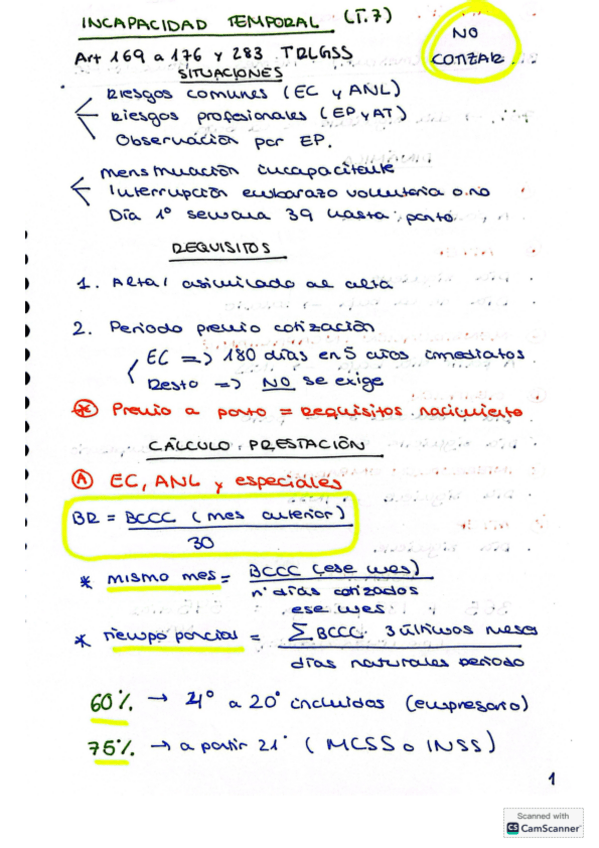 INCAPACIDAD TEMPORAL (T.7)
NO COTIZAR
Art 169 a 176 y 283 TRLGSS
SITUACIONES
Riesgos comunes (EC y ANL)
Riesgos profesionales (EP y AT)
Observación por EP.
Menstruación incapacitante
Interrupción embarazo voluntaria o no
Día 1º semana 39 hasta parto
REQUISITOS
1. Alta / asimilado al alta
2. Periodo previo cotización
EC => 180 días en 5 años inmediatos
Resto => NO se exige
* Previo a parto = Requisitos nacimiento
CÁLCULO PRESTACIÓN
A EC, ANL y especiales
BR = BCCC (mes anterior)
30
* mismo mes = BCCC (ese mes)
nº días cotizados
ese mes
* tiempo parcial = ∑ BCCC 3 últimos meses
días naturales periodo
60% → 4º a 20º incluidos (empresario)
75% → a partir 21º (MCSS o INSS)
1
Scanned with
CS CamScanner